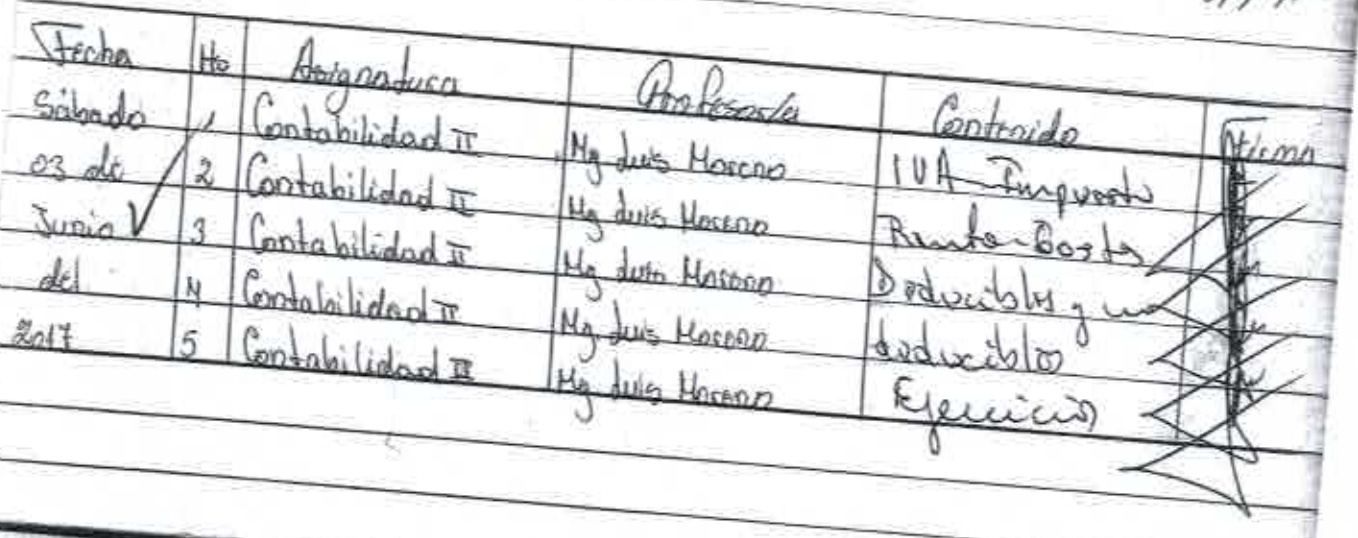 Fecha Ho Asignatura Profesor/a Contenido Firma
Sábado 1 Contabilidad II Mg Luis Moreno IVA - Impuesto
03 de 2 Contabilidad II Mg Luis Moreno Renta - Gastos
Junio 3 Contabilidad II Mg Luis Moreno Deducibles y no
del 4 Contabilidad II Mg Luis Moreno deducibles
2017 5 Contabilidad II Mg Luis Moreno Ejercicios